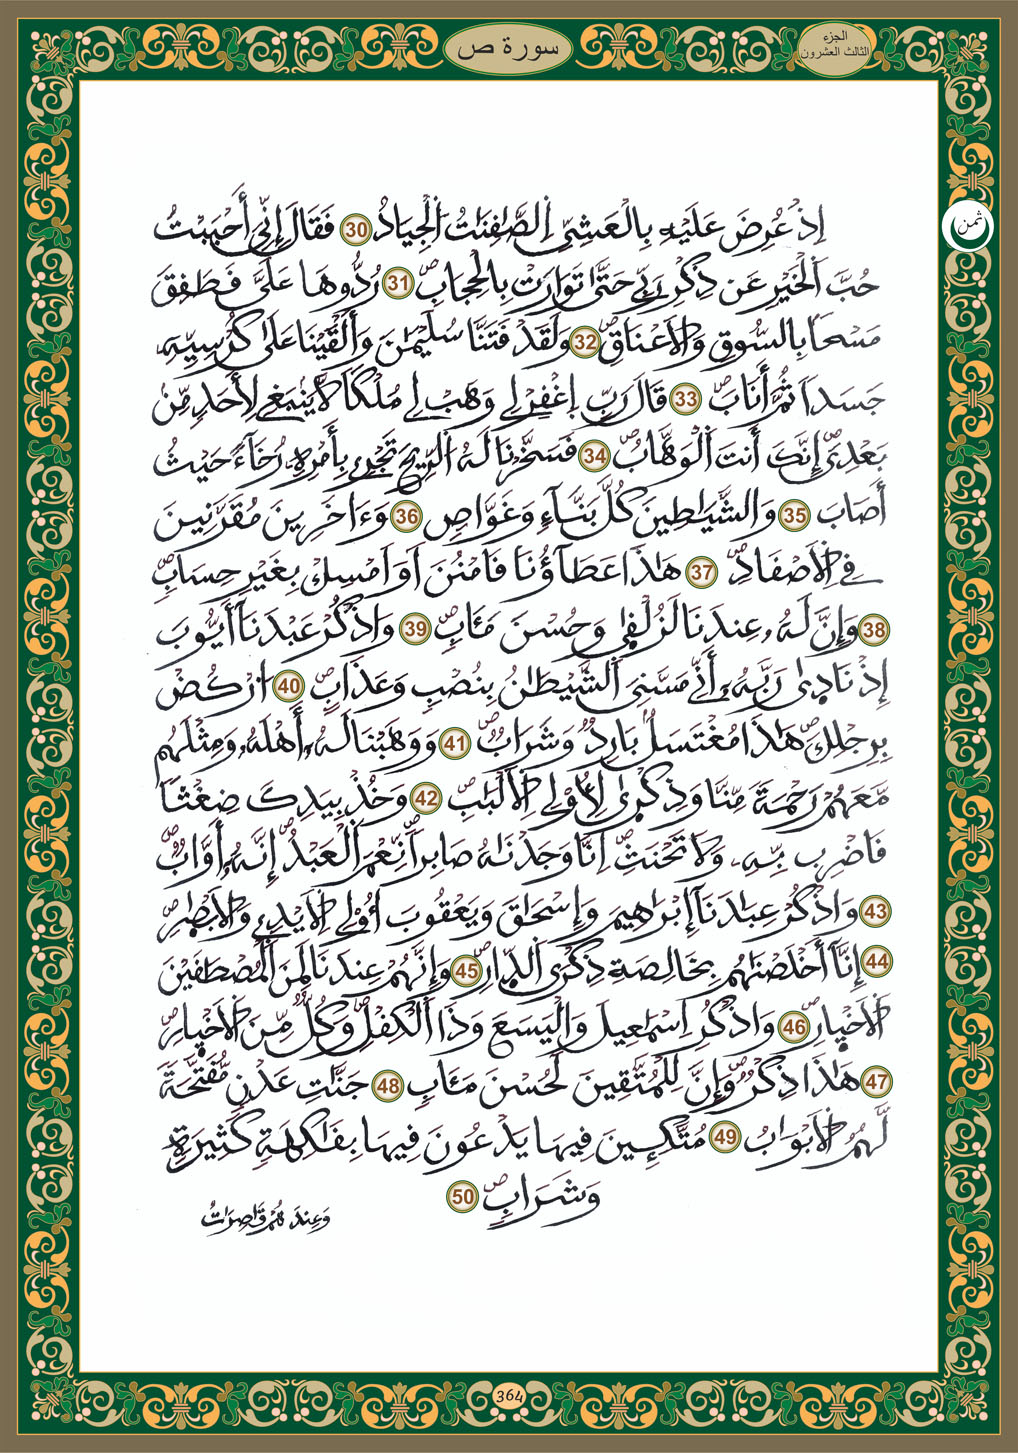 الجزء
الثالث العشرون
سورة ص
ثمن
إِذْ عُرِضَ عَلَيْهِ بِالْعَشِيِّ الصَّٰفِنَٰتُ الْجِيَادُ 30 فَقَالَ إِنِّيَ أَحْبَبْتُ
حُبَّ الْخَيْرِ عَن ذِكْرِ رَبِّي حَتَّىٰ تَوَارَتْ بِالْحِجَابِ ص 31 رُدُّوهَا عَلَيَّ فَطَفِقَ
مَسْحاً بِالسُّوقِ وَالْأَعْنَاقِ ص 32 وَلَقَدْ فَتَنَّا سُلَيْمَٰنَ وَأَلْقَيْنَا عَلَىٰ كُرْسِيِّهِ
جَسَداً ثُمَّ أَنَابَ ص 33 قَالَ رَبِّ اِغْفِرْ لِي وَهَبْ لِي مُلْكاً لَّا يَنۢبَغِي لِأَحَدٍ مِّنۢ
بَعْدِيَ ص إِنَّكَ أَنتَ الْوَهَّابُ ص 34 فَسَخَّرْنَا لَهُ الرِّيحَ تَجْرِي بِأَمْرِهِ رُخَآءً حَيْثُ
أَصَابَ 35 وَالشَّيَٰطِينَ كُلَّ بَنَّآءٍ وَغَوَّاصٍ ص 36 وَءَاخَرِينَ مُقَرَّنِينَ
فِي الْأَصْفَادِ ص 37 هَٰذَا عَطَآؤُنَا فَامْنُنَ اَوَ اَمْسِكْ بِغَيْرِ حِسَابٍ ص
38 وَإِنَّ لَهُ عِندَنَا لَزُلْفَىٰ وَحُسْنَ مَـَٔابٍ ص 39 وَاذْكُرْ عَبْدَنَآ أَيُّوبَ
إِذْ نَادَىٰ رَبَّهُ أَنِّي مَسَّنِيَ الشَّيْطَٰنُ بِنُصْبٍ وَعَذَابٍ ص 40 اَرْكُضْ
بِرِجْلِكَ ص هَٰذَا مُغْتَسَلٌۢ بَارِدٌ وَشَرَابٌ ص 41 وَوَهَبْنَا لَهُ أَهْلَهُ وَمِثْلَهُم
مَّعَهُمْ رَحْمَةً مِّنَّا وَذِكْرَىٰ لِأُوْلِي الْأَلْبَٰبِ ص 42 وَخُذْ بِيَدِكَ ضِغْثاً
فَاضْرِب بِّهِ وَلَا تَحْنَثِ ص اِنَّا وَجَدْنَٰهُ صَابِراً نِّعْمَ الْعَبْدُ ص إِنَّهُ أَوَّابٌ ص
43 وَاذْكُرْ عِبَٰدَنَآ إِبْرَاهِيمَ وَإِسْحَٰقَ وَيَعْقُوبَ أُوْلِي الْأَيْدِي وَالْأَبْصَٰرِ ص
44 إِنَّآ أَخْلَصْنَٰهُم بِخَالِصَةِ ذِكْرَى الدِّارِ ص 45 وَإِنَّهُمْ عِندَنَا لَمِنَ الْمُصْطَفَيْنَ
الْأَخْيِارِ ص 46 وَاذْكُرِ اسْمَٰعِيلَ وَالْيَسَعَ وَذَا الْكِفْلِ ص وَكُلٌّ مِّنَ الْأَخْيِارِ ص
47 هَٰذَا ذِكْرٌ ص وَإِنَّ لِلْمُتَّقِينَ لَحُسْنَ مَـَٔابٍ 48 جَنَّٰتِ عَدْنٍ مُّفَتَّحَةً
لَّهُمُ الْأَبْوَٰبُ 49 مُتَّكِـِٕينَ فِيهَا يَدْعُونَ فِيهَا بِفَٰكِهَةٍ كَثِيرَةٍ
وَشَرَابٍ ص 50
وَعِندَهُمْ قَٰصِرَٰتُ
364